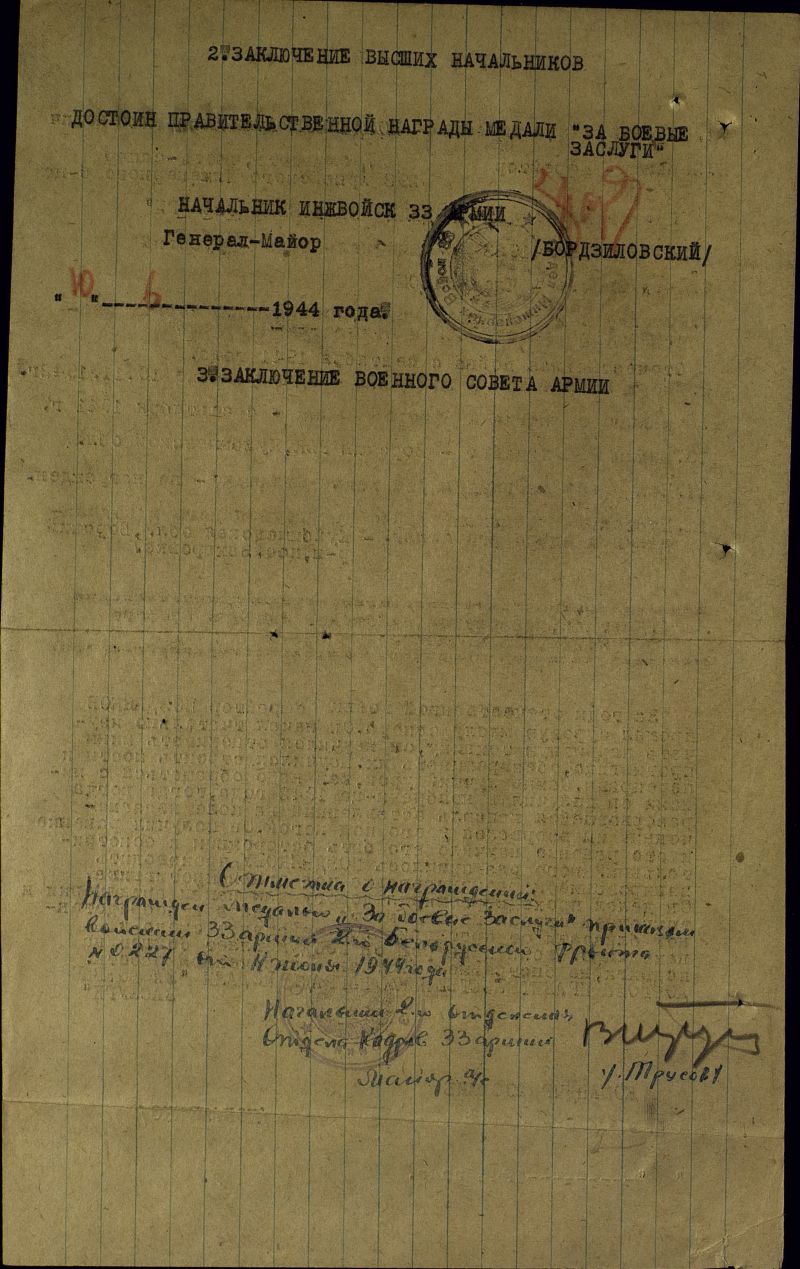 2. ЗАКЛЮЧЕНИЕ ВЫСШИХ НАЧАЛЬНИКОВ
ДОСТОИН ПРАВИТЕЛЬСТВЕННОЙ НАГРАДЫ МЕДАЛИ "ЗА БОЕВЫЕ
ЗАСЛУГИ"
НАЧАЛЬНИК ИНЖВОЙСК 33 АРМИИ
Генерал-Майор /БОРДЗИЛОВСКИЙ/
"10" 6 1944 года.
3. ЗАКЛЮЧЕНИЕ ВОЕННОГО СОВЕТА АРМИИ
Отметка о награждении:
Награжден медалью "За боевые заслуги" приказом
войскам 33 армии 2го Белорусского Фронта
№ 0227 от июня 1944 года
Начальник 2-го отделения
Отдела Кадров 33 армии
Майор а/с /Трусов/